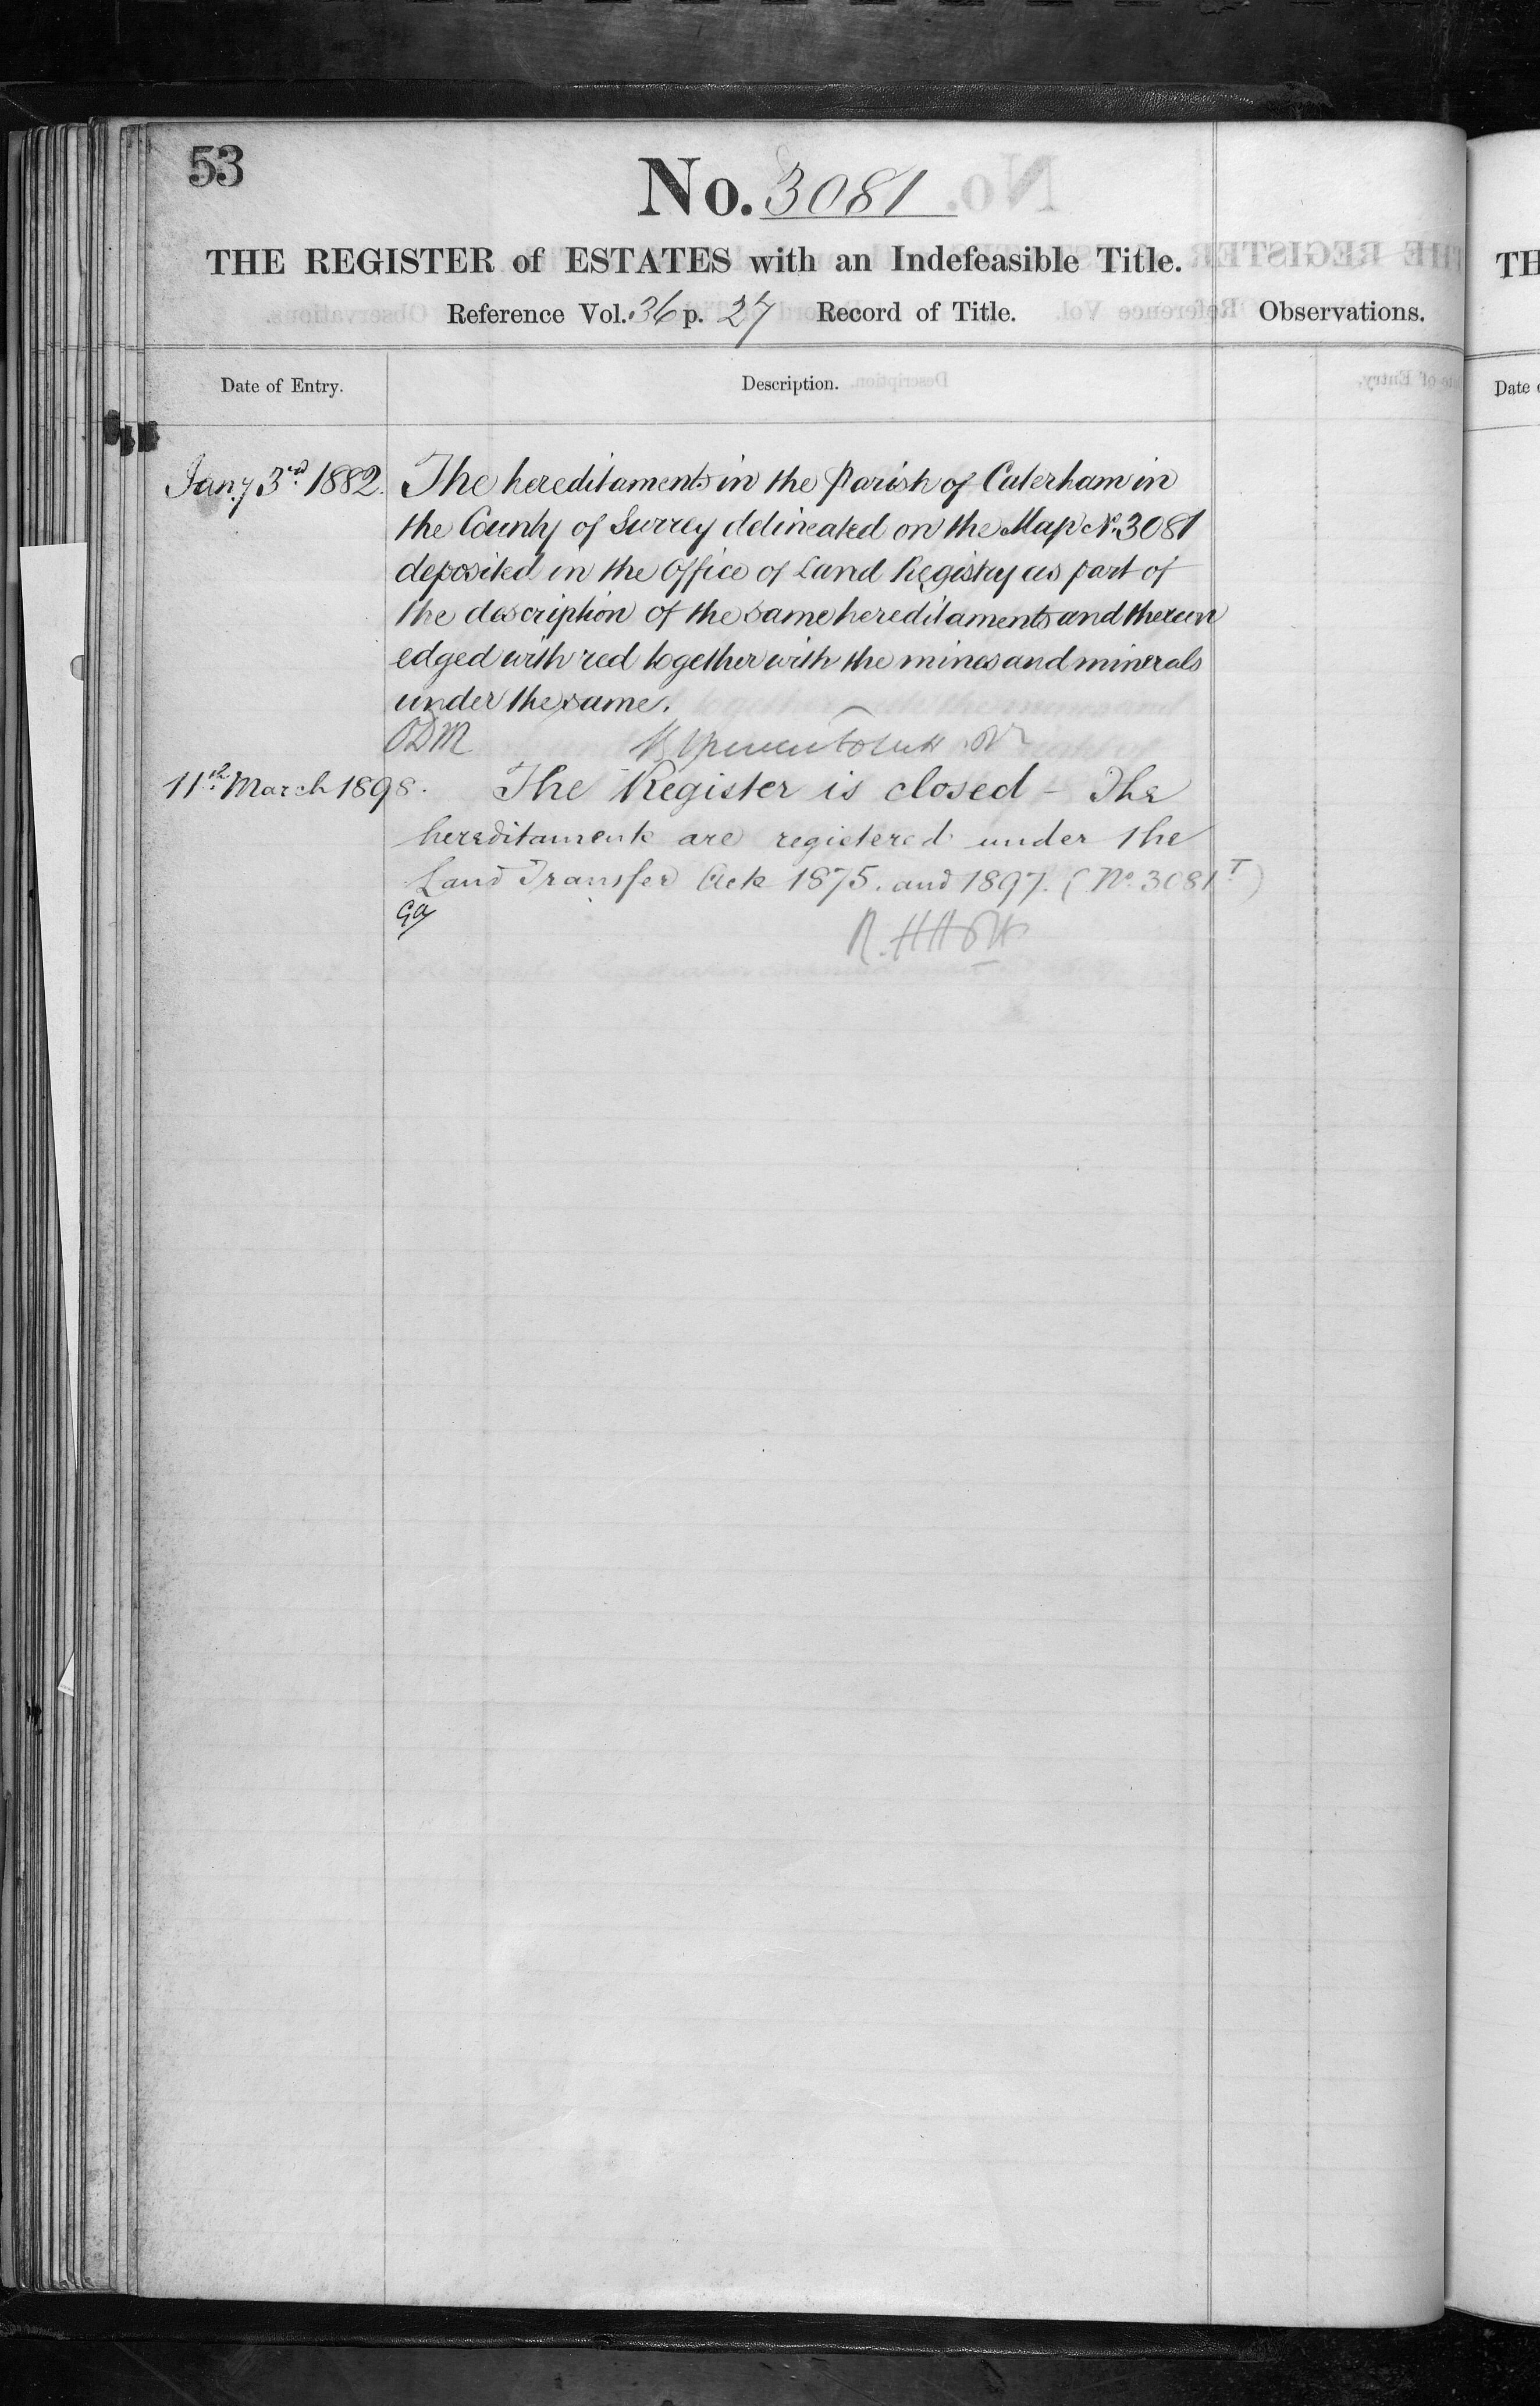 53
No. 3081
THE REGISTER of ESTATES with an Indefeasible Title.
Reference Vol. 36 p. 27 Record of Title.
Observations.
Date of Entry.
Description.
Jany 3rd 1882. The hereditaments in the Parish of Caterham in
the County of Surrey delineated on the Map No. 3081
deposited in the Office of Land Registry as part of
the description of the same hereditaments and therein
edged with red together with the mines and minerals
under the same.
ODM
11th March 1898. The Register is closed - The
hereditaments are registered under the
Land Transfer Acts 1875. and 1897. (No. 3081 T)
TH
Date